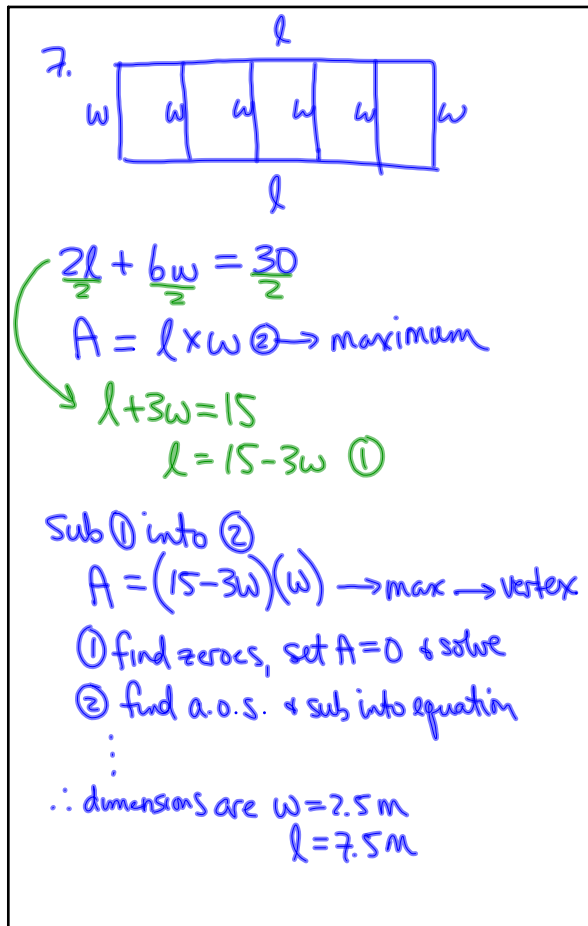 7.
l
w w w w w w
l
2l/2 + 6w/2 = 30/2
A = l × w ② → maximum
l + 3w = 15
l = 15 - 3w ①
sub ① into ②
A = (15 - 3w)(w) → max → vertex
① find zeroes, set A = 0 & solve
② find a.o.s. & sub into equation
⋮
∴ dimensions are w = 2.5 m
l = 7.5 m